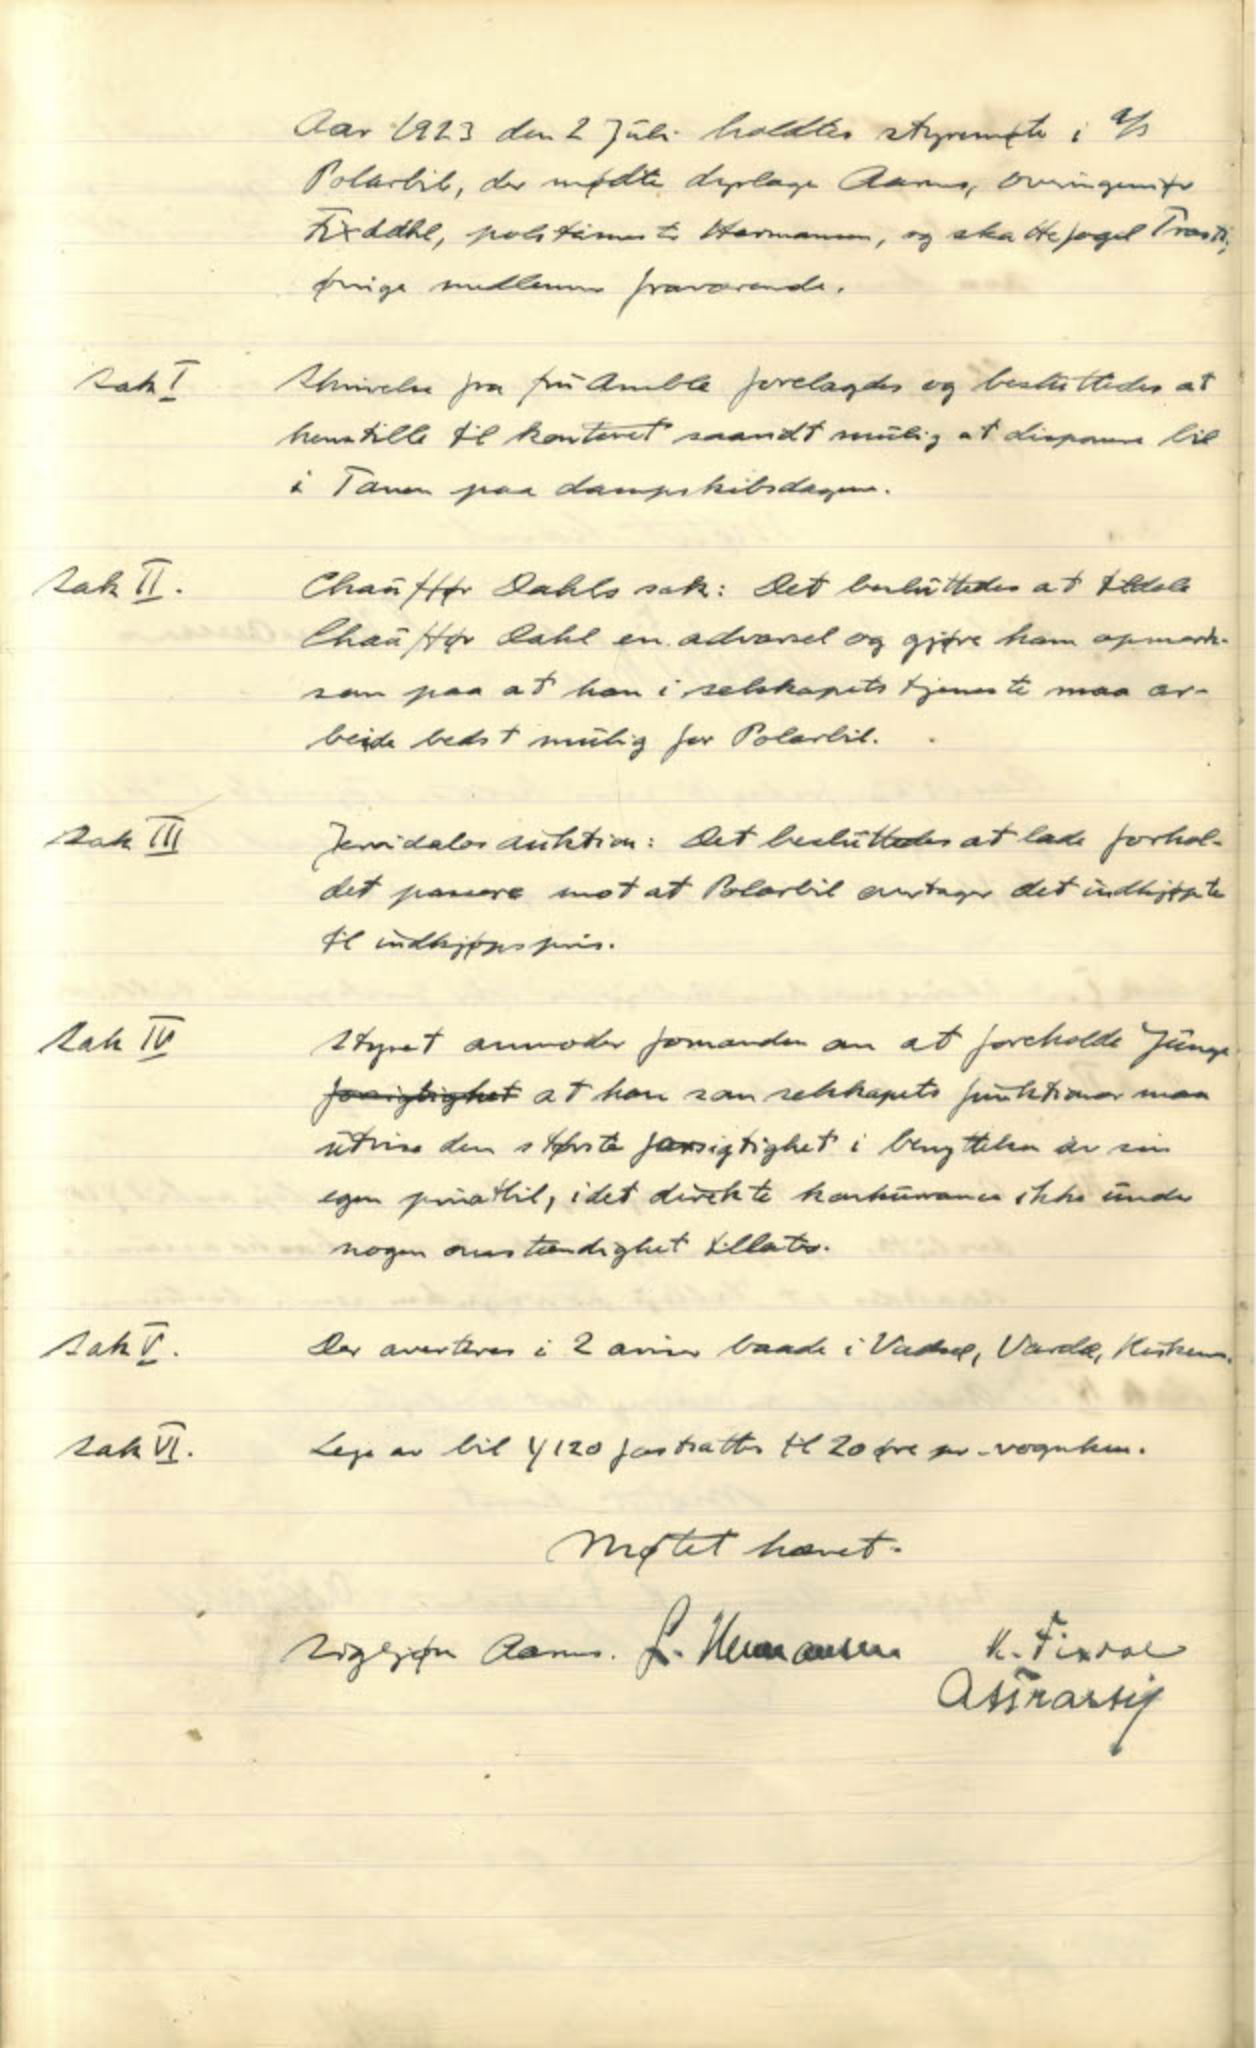 Aar 1923 den 2 Juli holdtes styremøte i A/S
Polarbil, der mødte dyrlæge Aarnes, Overingeniør
Fixddal, politimester Hermansen, og skattefoged Trasti,
øvrige medlemmer fraværende.
Sak I Skrivelse fra frü Amble forelagdes og beslüttedes at
henstille til kontoret saavidt mülig at disponere bil
i Tanen paa dampskibsdagene.
Sak II. Chaüffør Dahls sak: Det beslüttedes at tildele
Chaüffør Dahl en advarsel og gjøre ham opmerk-
som paa at han i selskapets tjeneste maa ar-
beide bedst mülig for Polarbil.
Sak III auktion: Det beslüttedes at lade forhol-
det passere mot at Polarbil overtager det indkjøpte
til indkjøpspris.
Sak IV Styret anmoder formanden om at foreholde Jünge
forsigtighet at han som selskapets fünktionær maa
ütvise den største forsigtighet i benyttelse av sin
egen privatbil, idet direkte konkürranse ikke ünder
nogen omstændighet tillates.
Sak V. Der averteres i 2 aviser baade i Vadsø, Vardø, Kirkenes.
Sak VI. Leie av bil Y120 fastsattes til 20 øre pr. vognkm.
Møtet hævet.
Sigbjørn Aarnes. L. Hermansen K. Fixdal
A Trasti